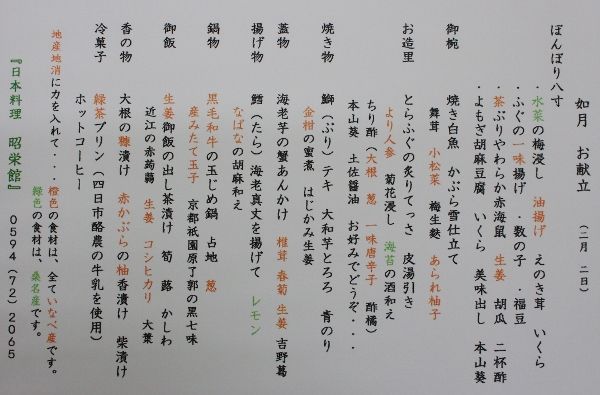 如月　お献立　（二月　二日）
ぼんぼり八寸
・水菜の梅浸し　油揚げ　えのき茸　いくら
・ふぐの一味揚げ　・数の子　・福豆
・茶ぶりやわらか赤海鼠　生姜　胡瓜　二杯酢
・よもぎ胡麻豆腐　いくら　美味出し　本山葵
御椀　焼き白魚　かぶら雪仕立て
舞茸　小松菜　梅生麩　あられ柚子
お造里　とらふぐの炙りてっさ　皮湯引き
より人参　菊花浸し　海苔の酒和え
ちり酢（大根　葱　一味唐辛子　酢橘）
本山葵　土佐醤油　お好みでどうぞ・・・
焼き物　鰤（ぶり）テキ　大和芋とろろ　青のり
金柑の蜜煮　はじかみ生姜
蓋物　海老芋の蟹あんかけ　椎茸　春菊　生姜　吉野葛
揚げ物　鱈（たら）海老真丈を揚げて　レモン
なばなの胡麻和え
鍋物　黒毛和牛の玉じめ鍋　占地　葱
産みたて玉子　京都祇園原了郭の黒七味
御飯　生姜御飯の出し茶漬け　筍　蕗　かしわ
近江の赤蒟蒻　生姜　コシヒカリ　大葉
香の物　大根の糠漬け　赤かぶらの柚香漬け　柴漬け
冷菓子　緑茶プリン（四日市酪農の牛乳を使用）
ホットコーヒー
地産地消に力を入れて・・・橙色の食材は、全ていなべ産です。
緑色の食材は、桑名産です。
『日本料理　昭栄館』　0594（72）2065